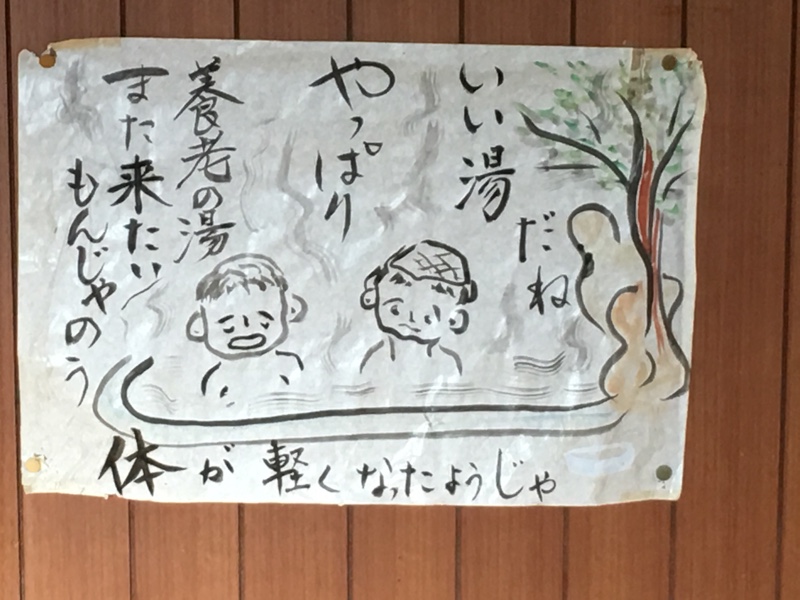 いい湯
だね
やっぱり
養老の湯
また来たい
もんじゃのう
体が軽くなったようじゃ